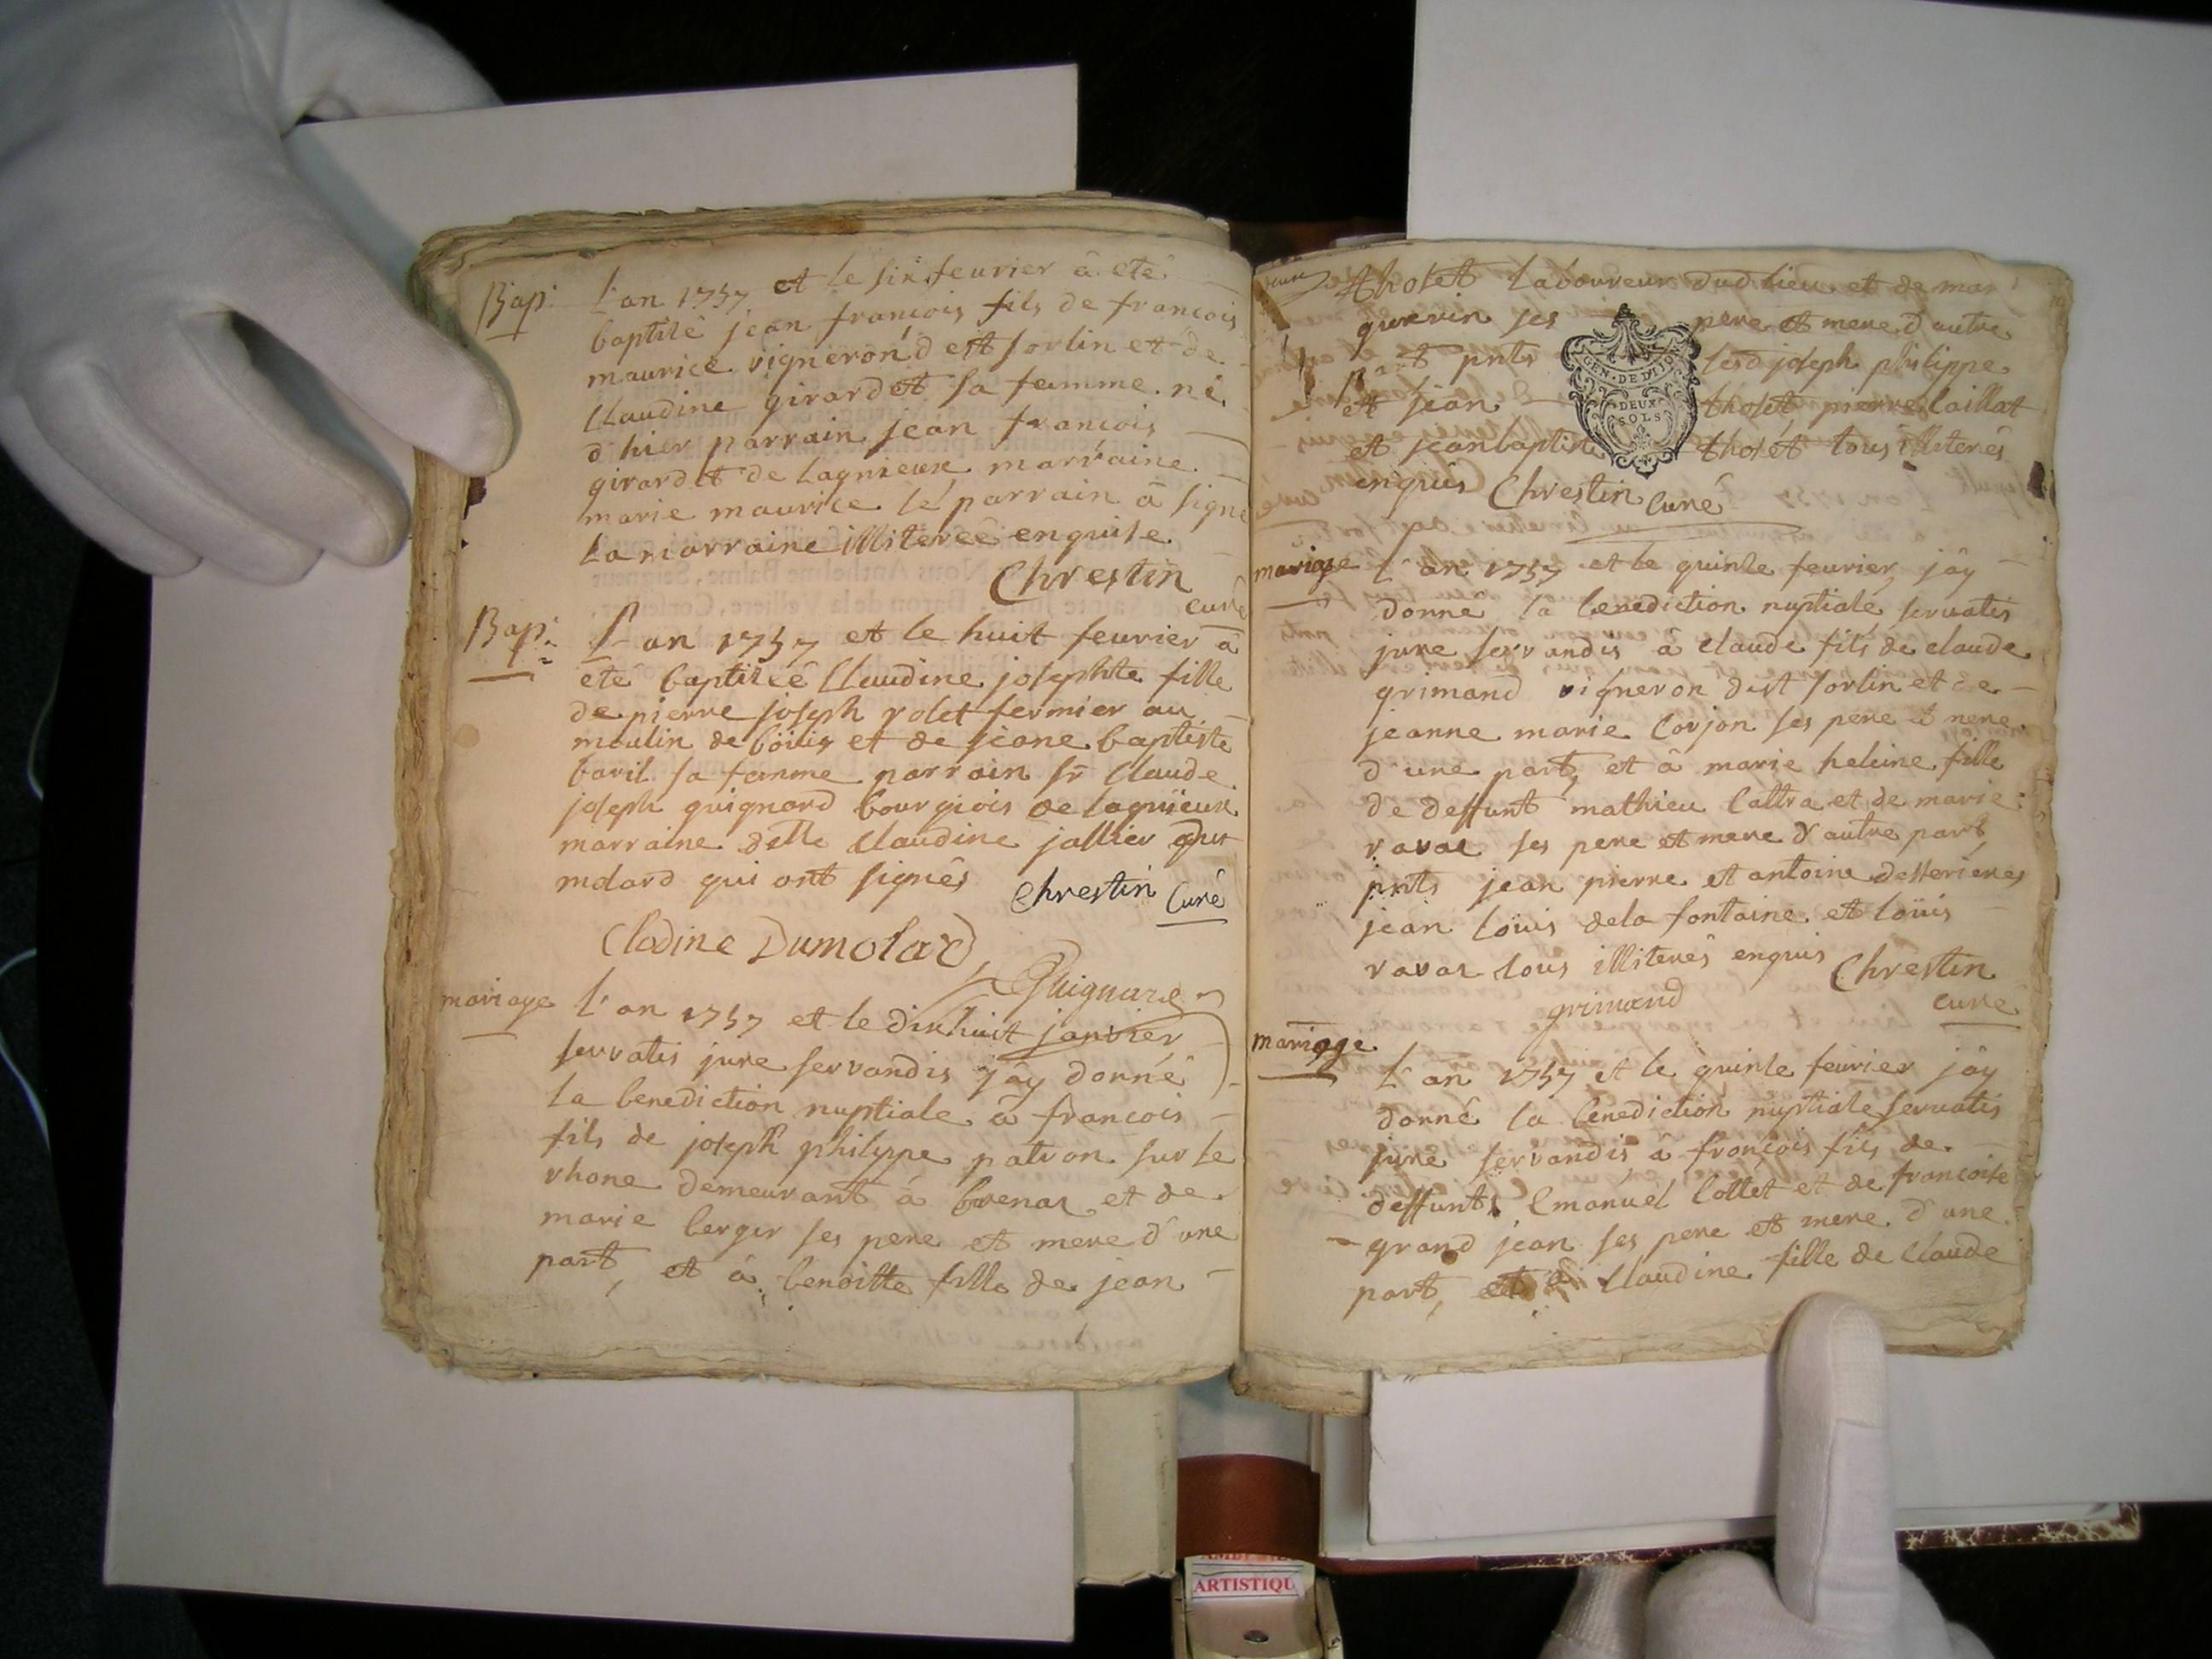 Bap.
L'an 1757 et le six feurier â eté
baptisê jean francois fils de francois
maurice vigneron d est sorlin et de
Claudine girardet sa femme né
d'hier parrain jean francois
girardet de Lagnieux marraine
marie maurice le parrain â signé
La marraine illiterée enquise
Chrestin
curé
Bap.
L'an 1757 et le huit feurier â
eté baptisée Claudine josephte fille
de pierre joseph rolet fermier au
moulin de et de jeane baptiste
baril sa femme parrain sr Claude
joseph guignard bourgiois de lagnieux
marraine delle Claudine jallier
molard qui ont signés Chrestin Curé
Clodine Dumolard
Guignard
mariage
L'an 1757 et le dixhuit janvier
servatis jure servandis jây donné
la benediction nuptiale â francois
fils de joseph philippe patron sur le
rhone demeurant â brenaz et de
marie berger ses pere et mere d'une
part, et â benoitte fille de jean
tholet laboureur dud lieu et de mar
guerin ses pere et mere d'autre
part pnts lesd joseph philippe
et jean tholet pierre Caillat
et jean baptiste tholet tous illiterés
enquis Chrestin Curé
GEN. DE DIJON
DEUX
SOLS
mariage
L'an 1757 et le quinse feurier jây
donné la benediction nuptiale servatis
jure servandis â claude fils de claude
grimand vigneron dest sorlin et de
jeanne marie Corjon ses pere et mere
d'une part, et â marie heleine fille
de deffunt mathieu Cattra et de marie
ravaz ses pere et mere d'autre part
pnts jean pierre et antoine desserieres
jean loüis dela fontaine et loüis
ravaz tous illiterés enquis Chrestin
grimand curé
mariage
L'an 1757 et le quinse feurier jây
donné la benediction nuptiale servatis
jure servandis â françois fils de
deffunts Emanuel Cottet et de francoise
grand jean ses pere et mere d'une
part, et â Claudine fille de Claude
ARTISTIQU